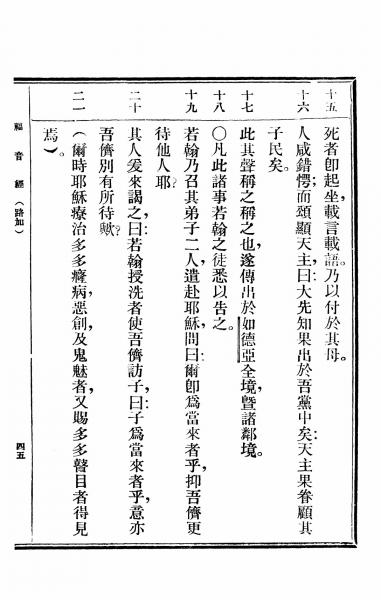 十五 死者卽起坐,載言載語。乃以付於其母。
十六 人咸錯愕;而頌顯天主,曰:大先知果出於吾黨中矣;天主果眷顧其
子民矣。
十七 此其聲稱之稱之也,遂傳出於如德亞全境,曁諸鄰境。
十八 〇凡此諸事若翰之徒悉以告之。
十九 若翰乃召其弟子二人,遣赴耶穌,問曰:爾卽爲當來者乎,抑吾儕更
待他人耶?
二十 其人爰來謁之,曰:若翰授洗者使吾儕訪子,曰:子爲當來者乎,意亦
吾儕別有所待歟?
二一 (爾時耶穌療治多多癃病,惡創,及鬼魅者,又賜多多瞽目者得見
焉)。
福音經(路加) 四五